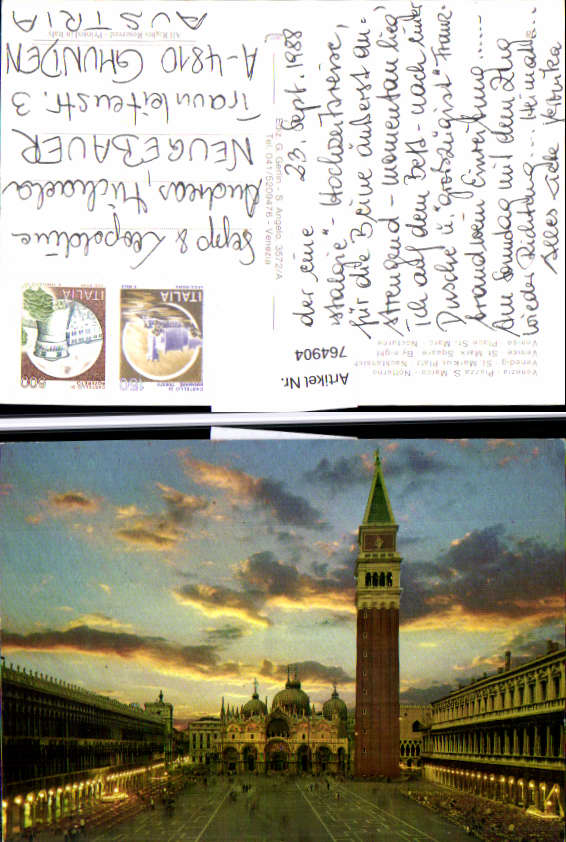 der eine 23. Sept. 1988
"-stalgie"- Hochzeitsreise,
für die Beine äußerst an-
strengend - momentan lieg'
ich auf dem Bett - nach
Dusche u. "großzügigst" Franz-
brandwein Einreibung.....
Am Sonntag mit dem Zug
wieder Richtung... Heimat...
alles Liebe
Venezia - Piazza S. Marco - Notturno
Venedig - St. Markus Platz - Nachtansicht
Venice - St. Marx Square - By night
Venise - Place St. Marc - Nocturne
Ediz. G. Gemin - S. Angelo, 3572/A
Tel. 041/5209476 - Venezia
All Rights Reserved - Printed in Italy
ITALIA
600
ITALIA
150
Sepp & Leopoldine
Andreas, Michaela
NEUGEBAUER
Traunleitenstr. 3
A-4810 GMUNDEN
AUSTRIA
Artikel Nr.
764904